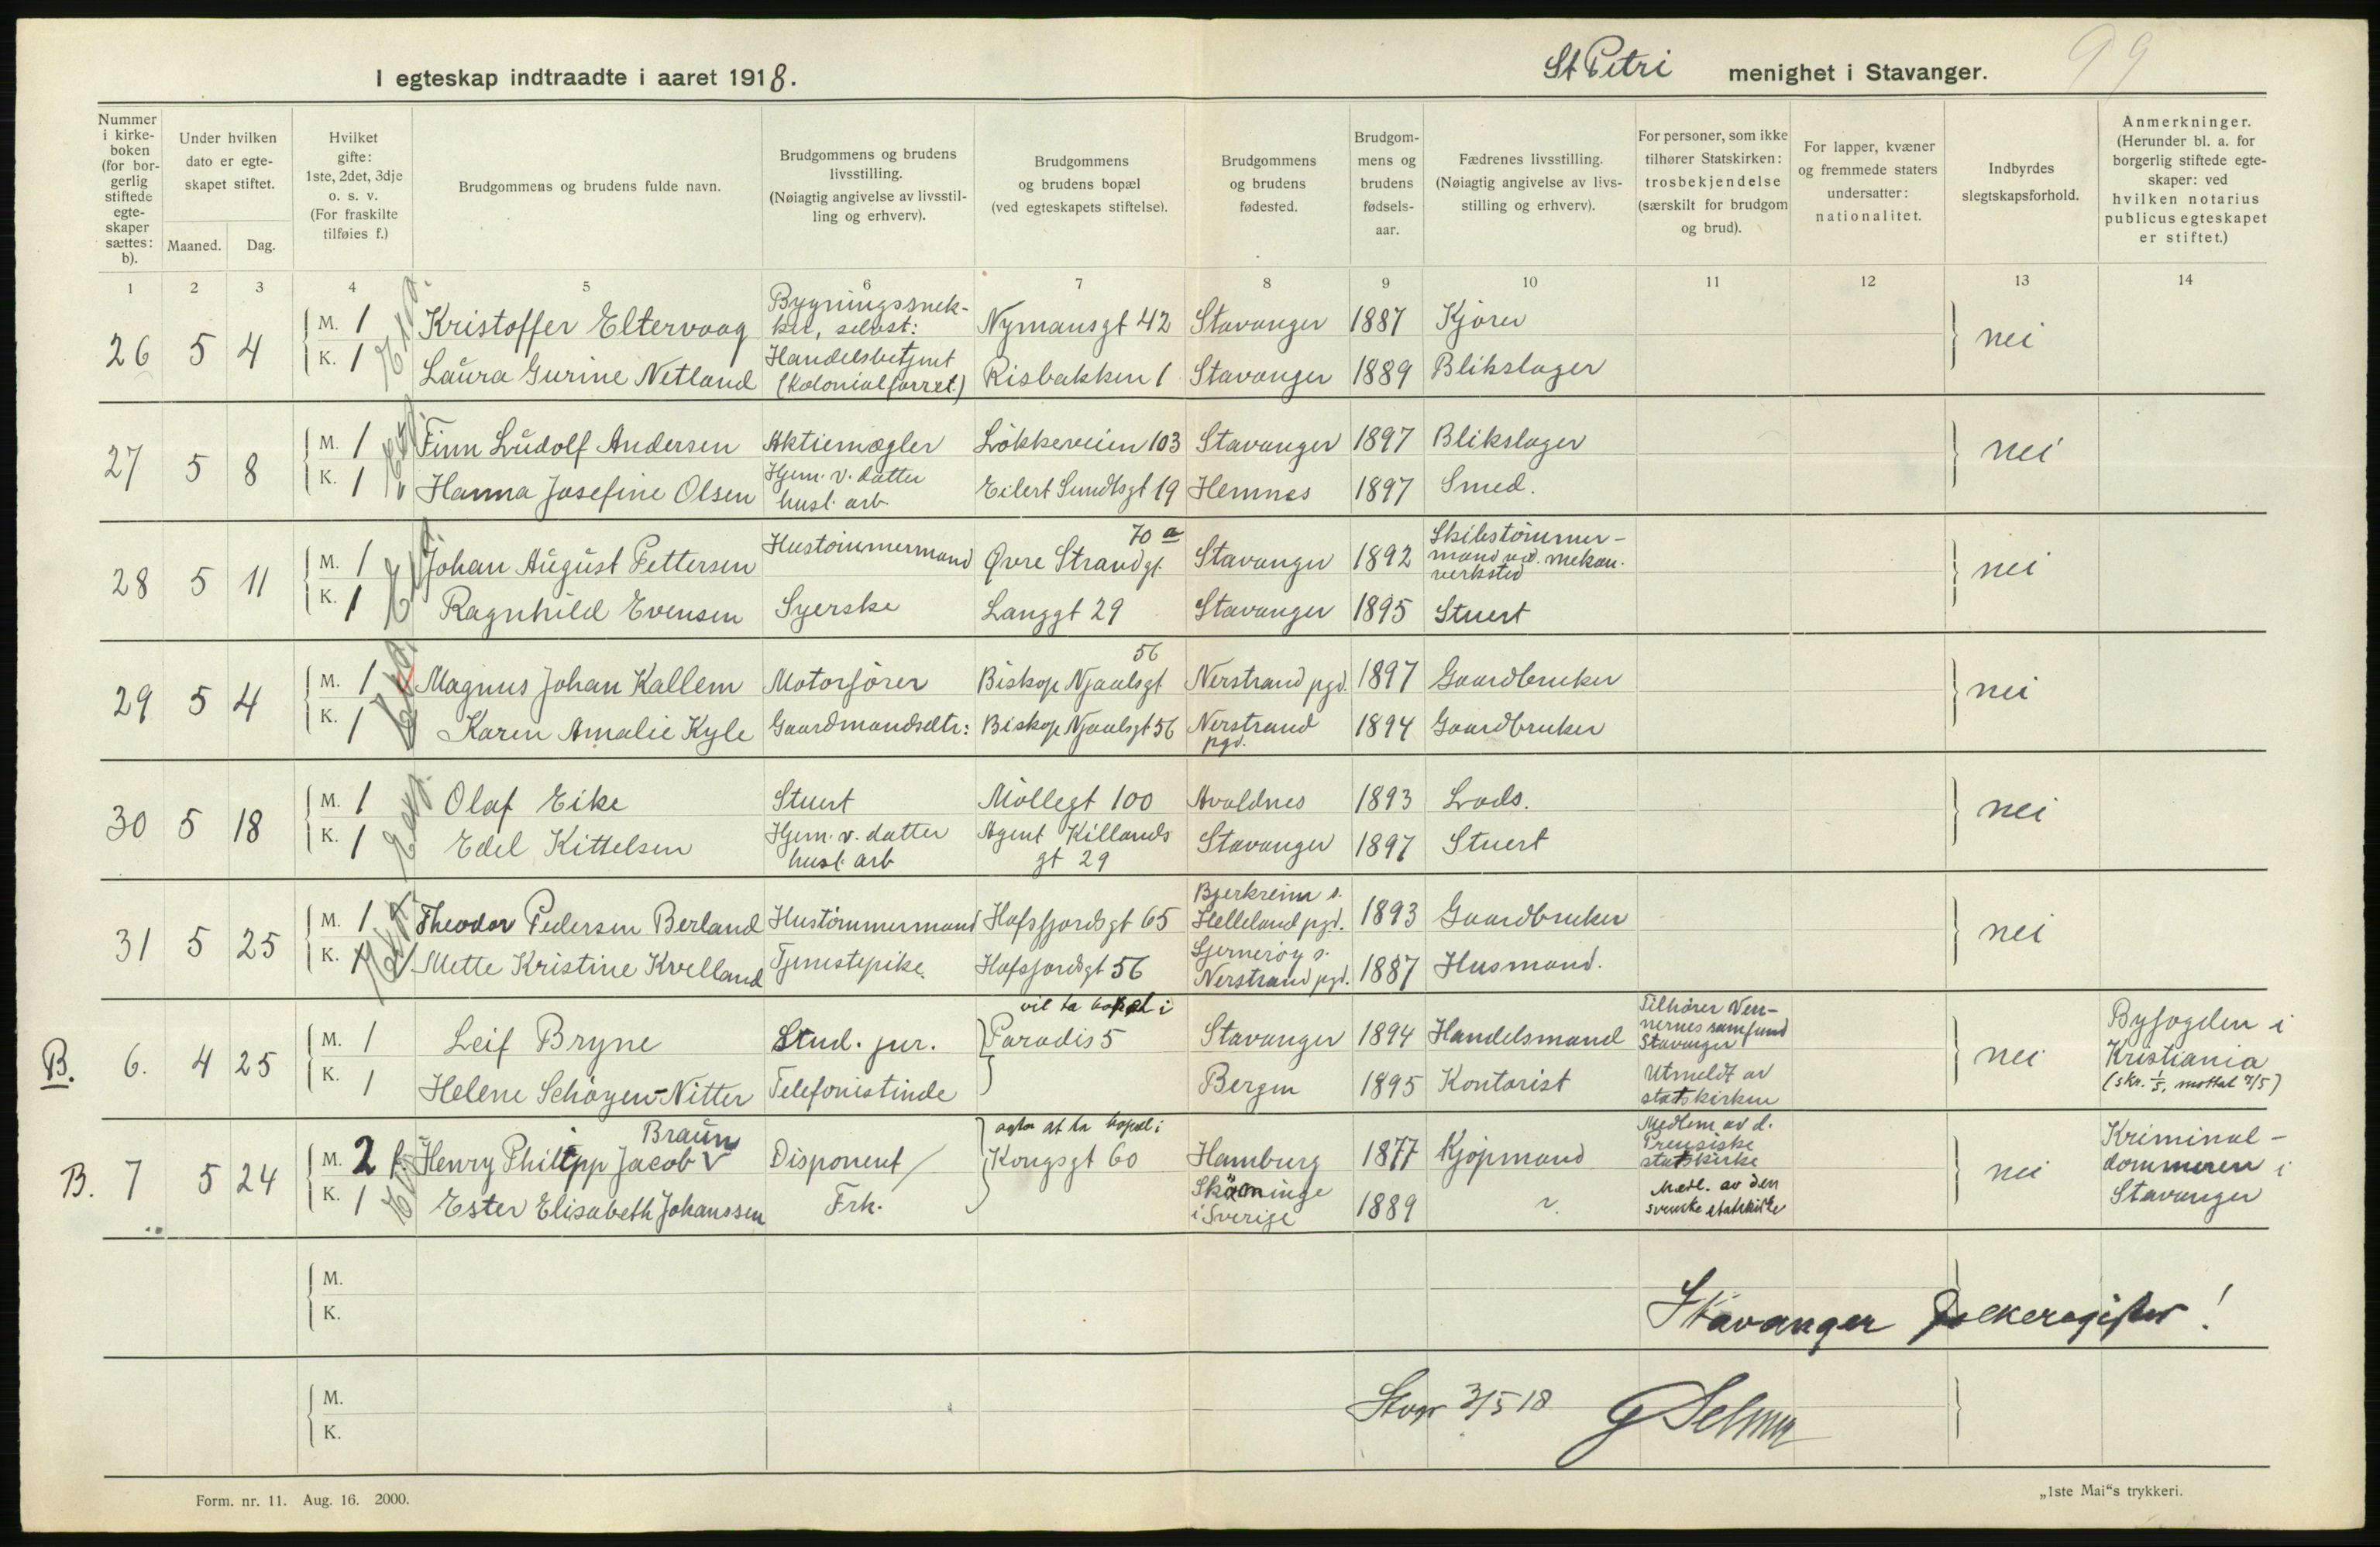 99
I egteskap indtraadte i aaret 1918.
St Petri menighet i Stavanger.
Nummer i kirkeboken (for borgerlig stiftede egteskaper sættes: b).
Under hvilken dato er egteskapet stiftet.
Maaned. Dag.
Hvilket gifte: 1ste, 2det, 3dje o. s. v. (For fraskilte tilføies f.)
Brudgommens og brudens fulde navn.
Brudgommens og brudens livsstilling. (Nøiagtig angivelse av livsstilling og erhverv).
Brudgommens og brudens bopæl (ved egteskapets stiftelse).
Brudgommens og brudens fødested.
Brudgommens og brudens fødselsaar.
Fædrenes livsstilling. (Nøiagtig angivelse av livsstilling og erhverv).
For personer, som ikke tilhører Statskirken: trosbekjendelse (særskilt for brudgom og brud).
For lapper, kvæner og fremmede staters undersatter: nationalitet.
Indbyrdes slegtskapsforhold.
Anmerkninger. (Herunder bl. a. for borgerlig stiftede egteskaper: ved hvilken notarius publicus egteskapet er stiftet.)
1 2 3 4 5 6 7 8 9 10 11 12 13 14
26 5 4 M. 1 Kristoffer Eltervaag Bygningssnekker, selvst: Nymansgt 42 Stavanger 1887 Kjører nei
K. 1 Laura Gurine Netland Handelsbetjent (kolonialforret.) Risbakken 1 Stavanger 1889 Blikslager
27 5 8 M. 1 Finn Ludolf Andersen Aktiemægler Løkkeveien 103 Stavanger 1897 Blikslager nei
K. 1 Hanna Josefine Olsen Hjem. v. datter husl. arb Eilert Sundtsgt 19 Hemnes 1897 Smed.
28 5 11 M. 1 Johan August Pettersen Hustømmermand Øvre Strandgt. 70 a Stavanger 1892 Skibstømmermand ved. mekan. verksted nei
K. 1 Ragnhild Evensen Syerske Langgt 29 Stavanger 1895 Stuert
29 5 4 M. 1 Magnus Johan Kallem Motorfører Biskop Njaalsgt 56 Nerstrand pgd. 1897 Gaardbruker nei
K. 1 Karen Amalie Kyle Gaardmandsdtr: Biskop Njaalsgt 56 Nerstrand pgd. 1894 Gaardbruker
30 5 18 M. 1 Olaf Eike Stuert Møllegt 100 Avaldnes 1893 Lods. nei
K. 1 Edel Kittelsen Hjem. v. datter husl. arb Agent Killands gt 29 Stavanger 1897 Stuert
31 5 25 M. 1 Theodor Pedersen Berland Hustømmermand Hafsfjordsgt 65 Bjerkreim s. Helleland pgd. 1893 Gaardbruker nei
K. 1 Mette Kristine Kvelland Tjenestepike. Hafsfjordsgt 56 Sjernerøy s. Nerstrand pgd. 1887 Husmand.
B. 6. 4 25 M. 1 Leif Bryne Stud. jur. vil ta bopæl i Paradis 5 Stavanger 1894 Handelsmand Tilhører Vennernes samfund Stavanger nei Byfogden i Kristiania (skr. 1/5, mottat 7/5)
K. 1 Helene Schøyen-Nitter Telefonistinde Bergen 1895 Kontorist Utmeldt av statskirken
B. 7 5 24 M. 2 f. Henry Philipp Jacob Braun Disponent agter at ta bopæl i Kongsgt 60 Hamburg 1877 Kjøpmand Medlem av d. Preusiske statskirke nei Kriminaldommeren i Stavanger
K. 1 Ester Elisabeth Johanssen Frk. Skäninge i Sverige 1889 Medl. av den svenske statskirke
M.
K.
Stavanger Folkeregister!
M.
K.
Stvgr 3/5 18
Form. nr. 11. Aug. 16. 2000.
„1ste Mai“s trykkeri.